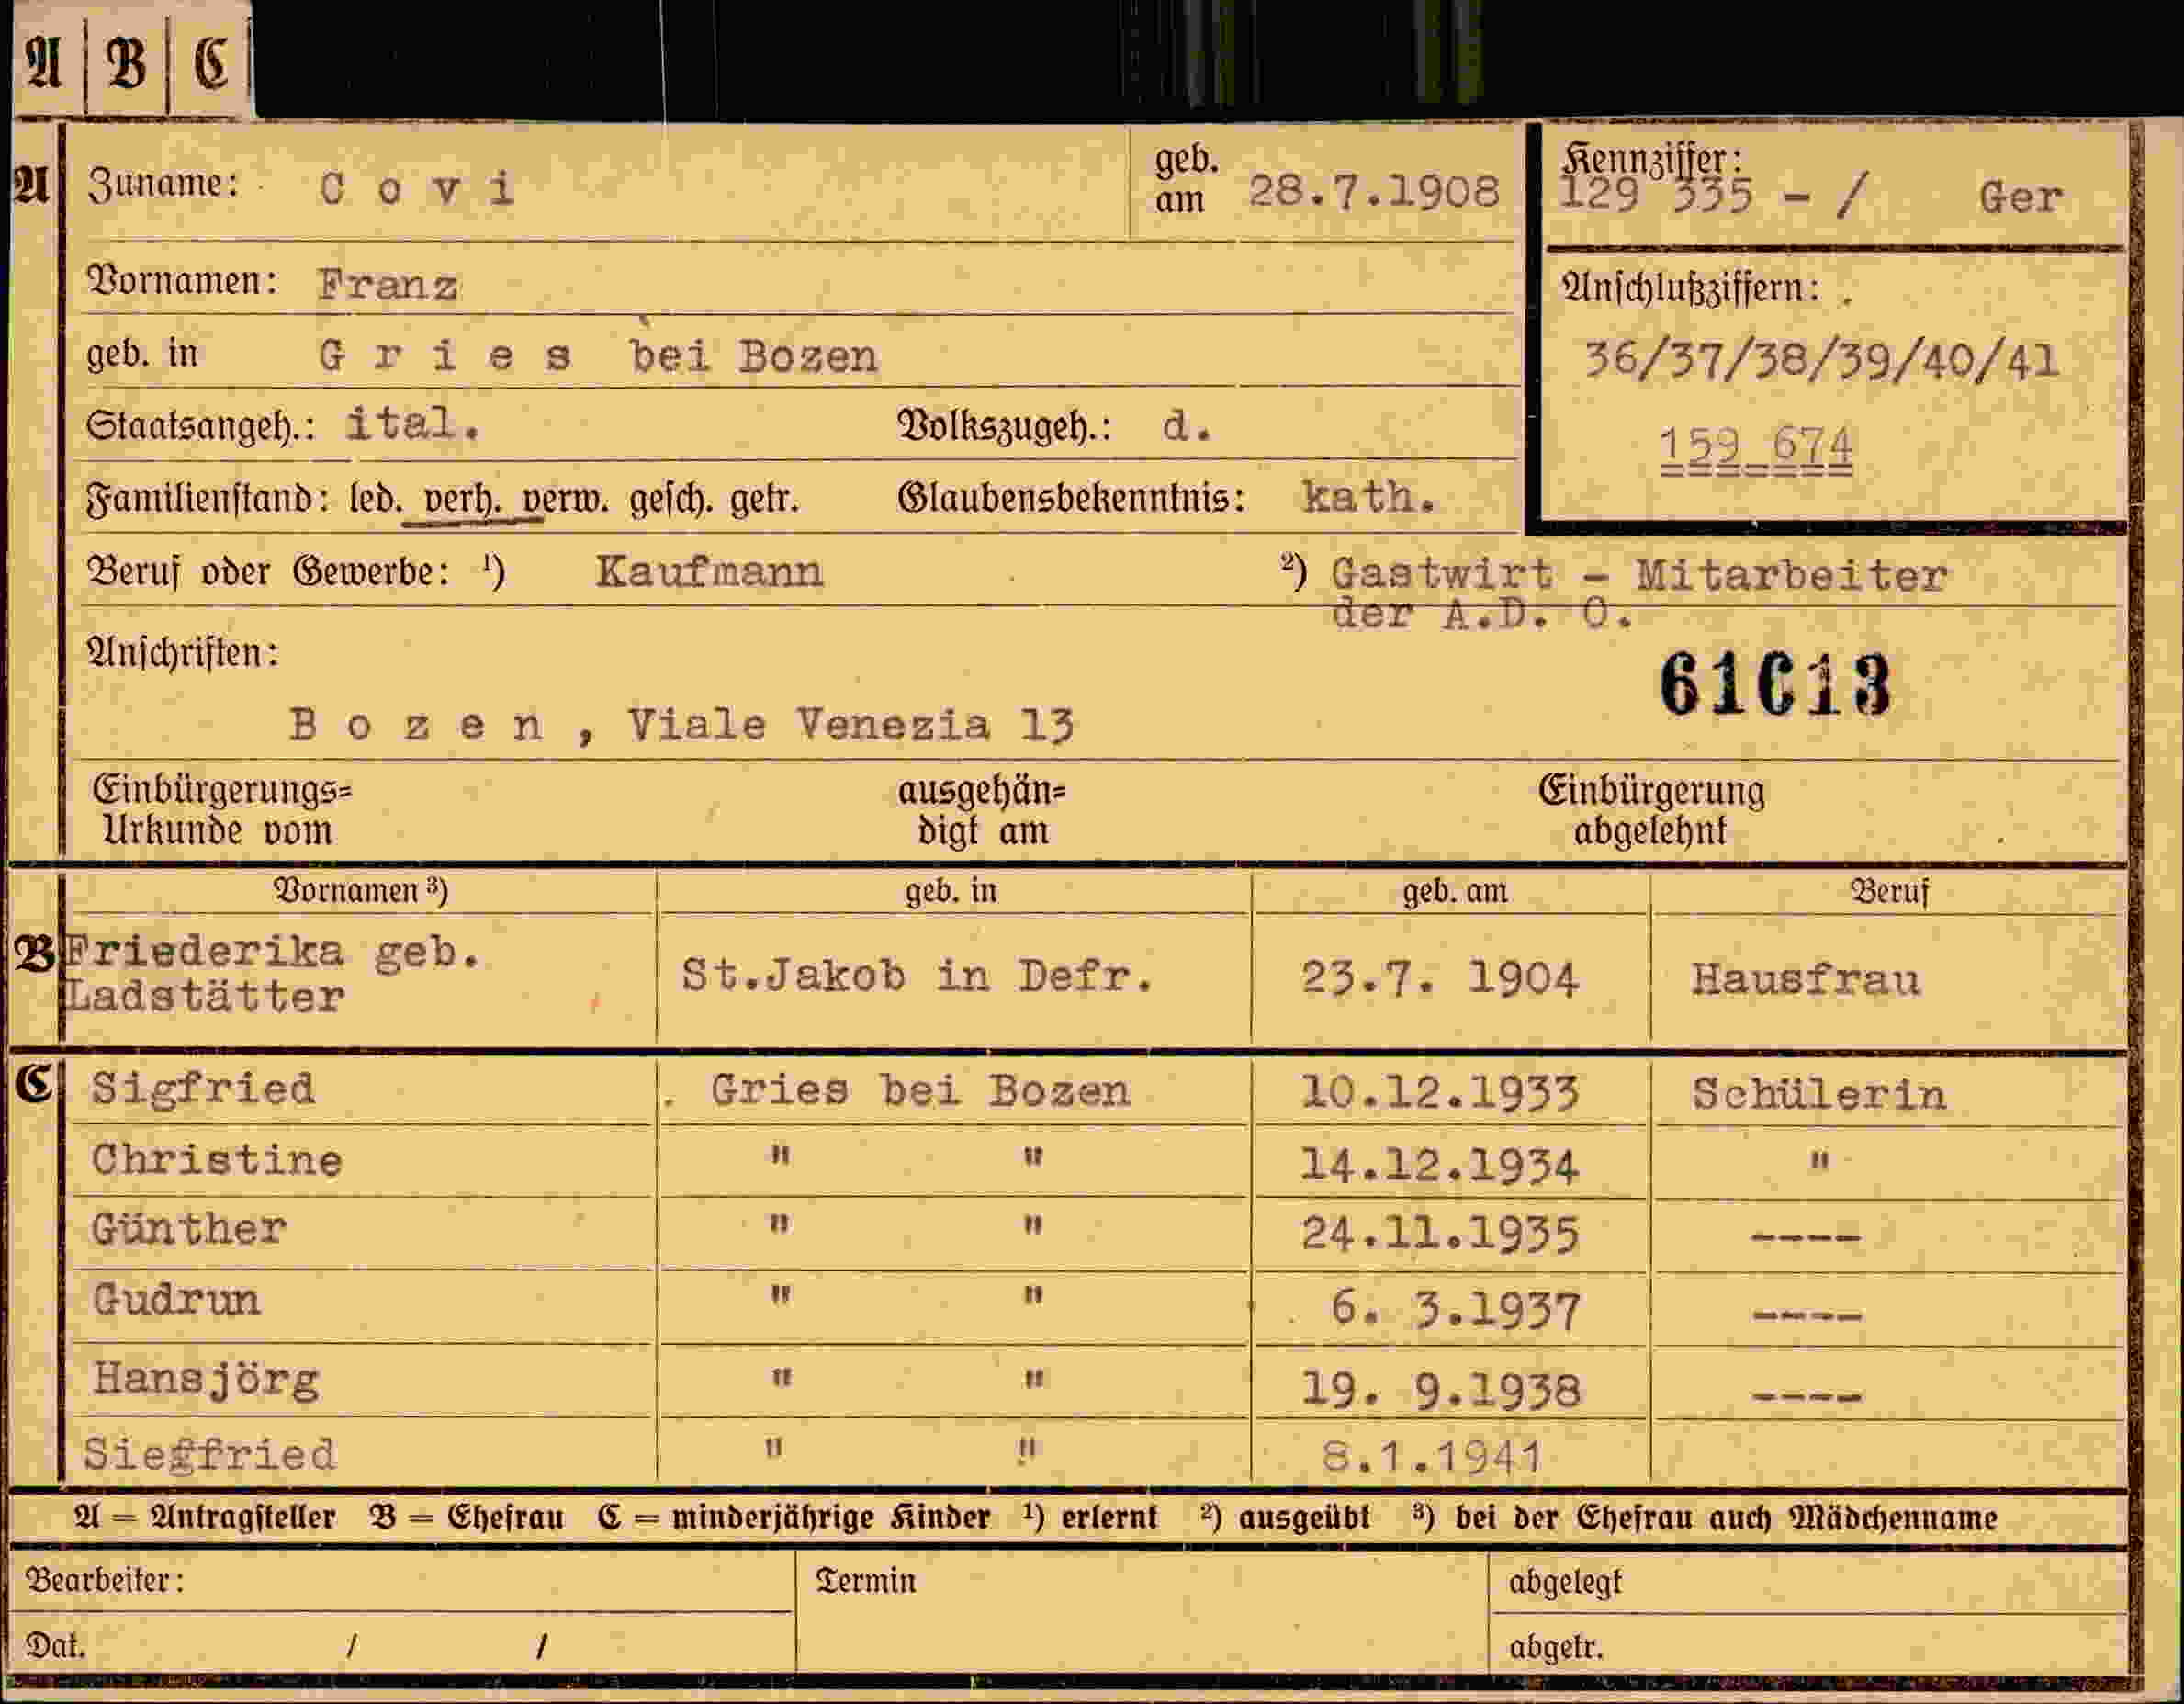 A | B | C
A Zuname: C o v i geb. am 28.7.1908
Kennziffer:
129 335 - / Ger
Vornamen: Franz
Anschlußziffern:
geb. in G r i e s bei Bozen
36/37/38/39/40/41
Staatsangeh.: ital. Volkszugeh.: d.
159 674
Familienstand: led. verh. verw. gesch. getr. Glaubensbekenntnis: kath.
Beruf oder Gewerbe: ¹) Kaufmann ²) Gastwirt - Mitarbeiter
der A.D. O.
Anschriften:
61613
B o z e n , Viale Venezia 13
Einbürgerungs= ausgehän= Einbürgerung
Urkunde vom digt am abgelehnt
Vornamen ³) geb. in geb. am Beruf
B Friederika geb.
Ladstätter St.Jakob in Defr. 23.7. 1904 Hausfrau
C Sigfried Gries bei Bozen 10.12.1933 Schülerin
Christine " " 14.12.1934 "
Günther " " 24.11.1935 ----
Gudrun " " 6. 3.1937 ----
Hansjörg " " 19. 9.1938 ----
Siegfried " " 8.1.1941
A = Antragsteller B = Ehefrau C = minderjährige Kinder ¹) erlernt ²) ausgeübt ³) bei der Ehefrau auch Mädchenname
Bearbeiter: Termin abgelegt
Dat. / / abgetr.